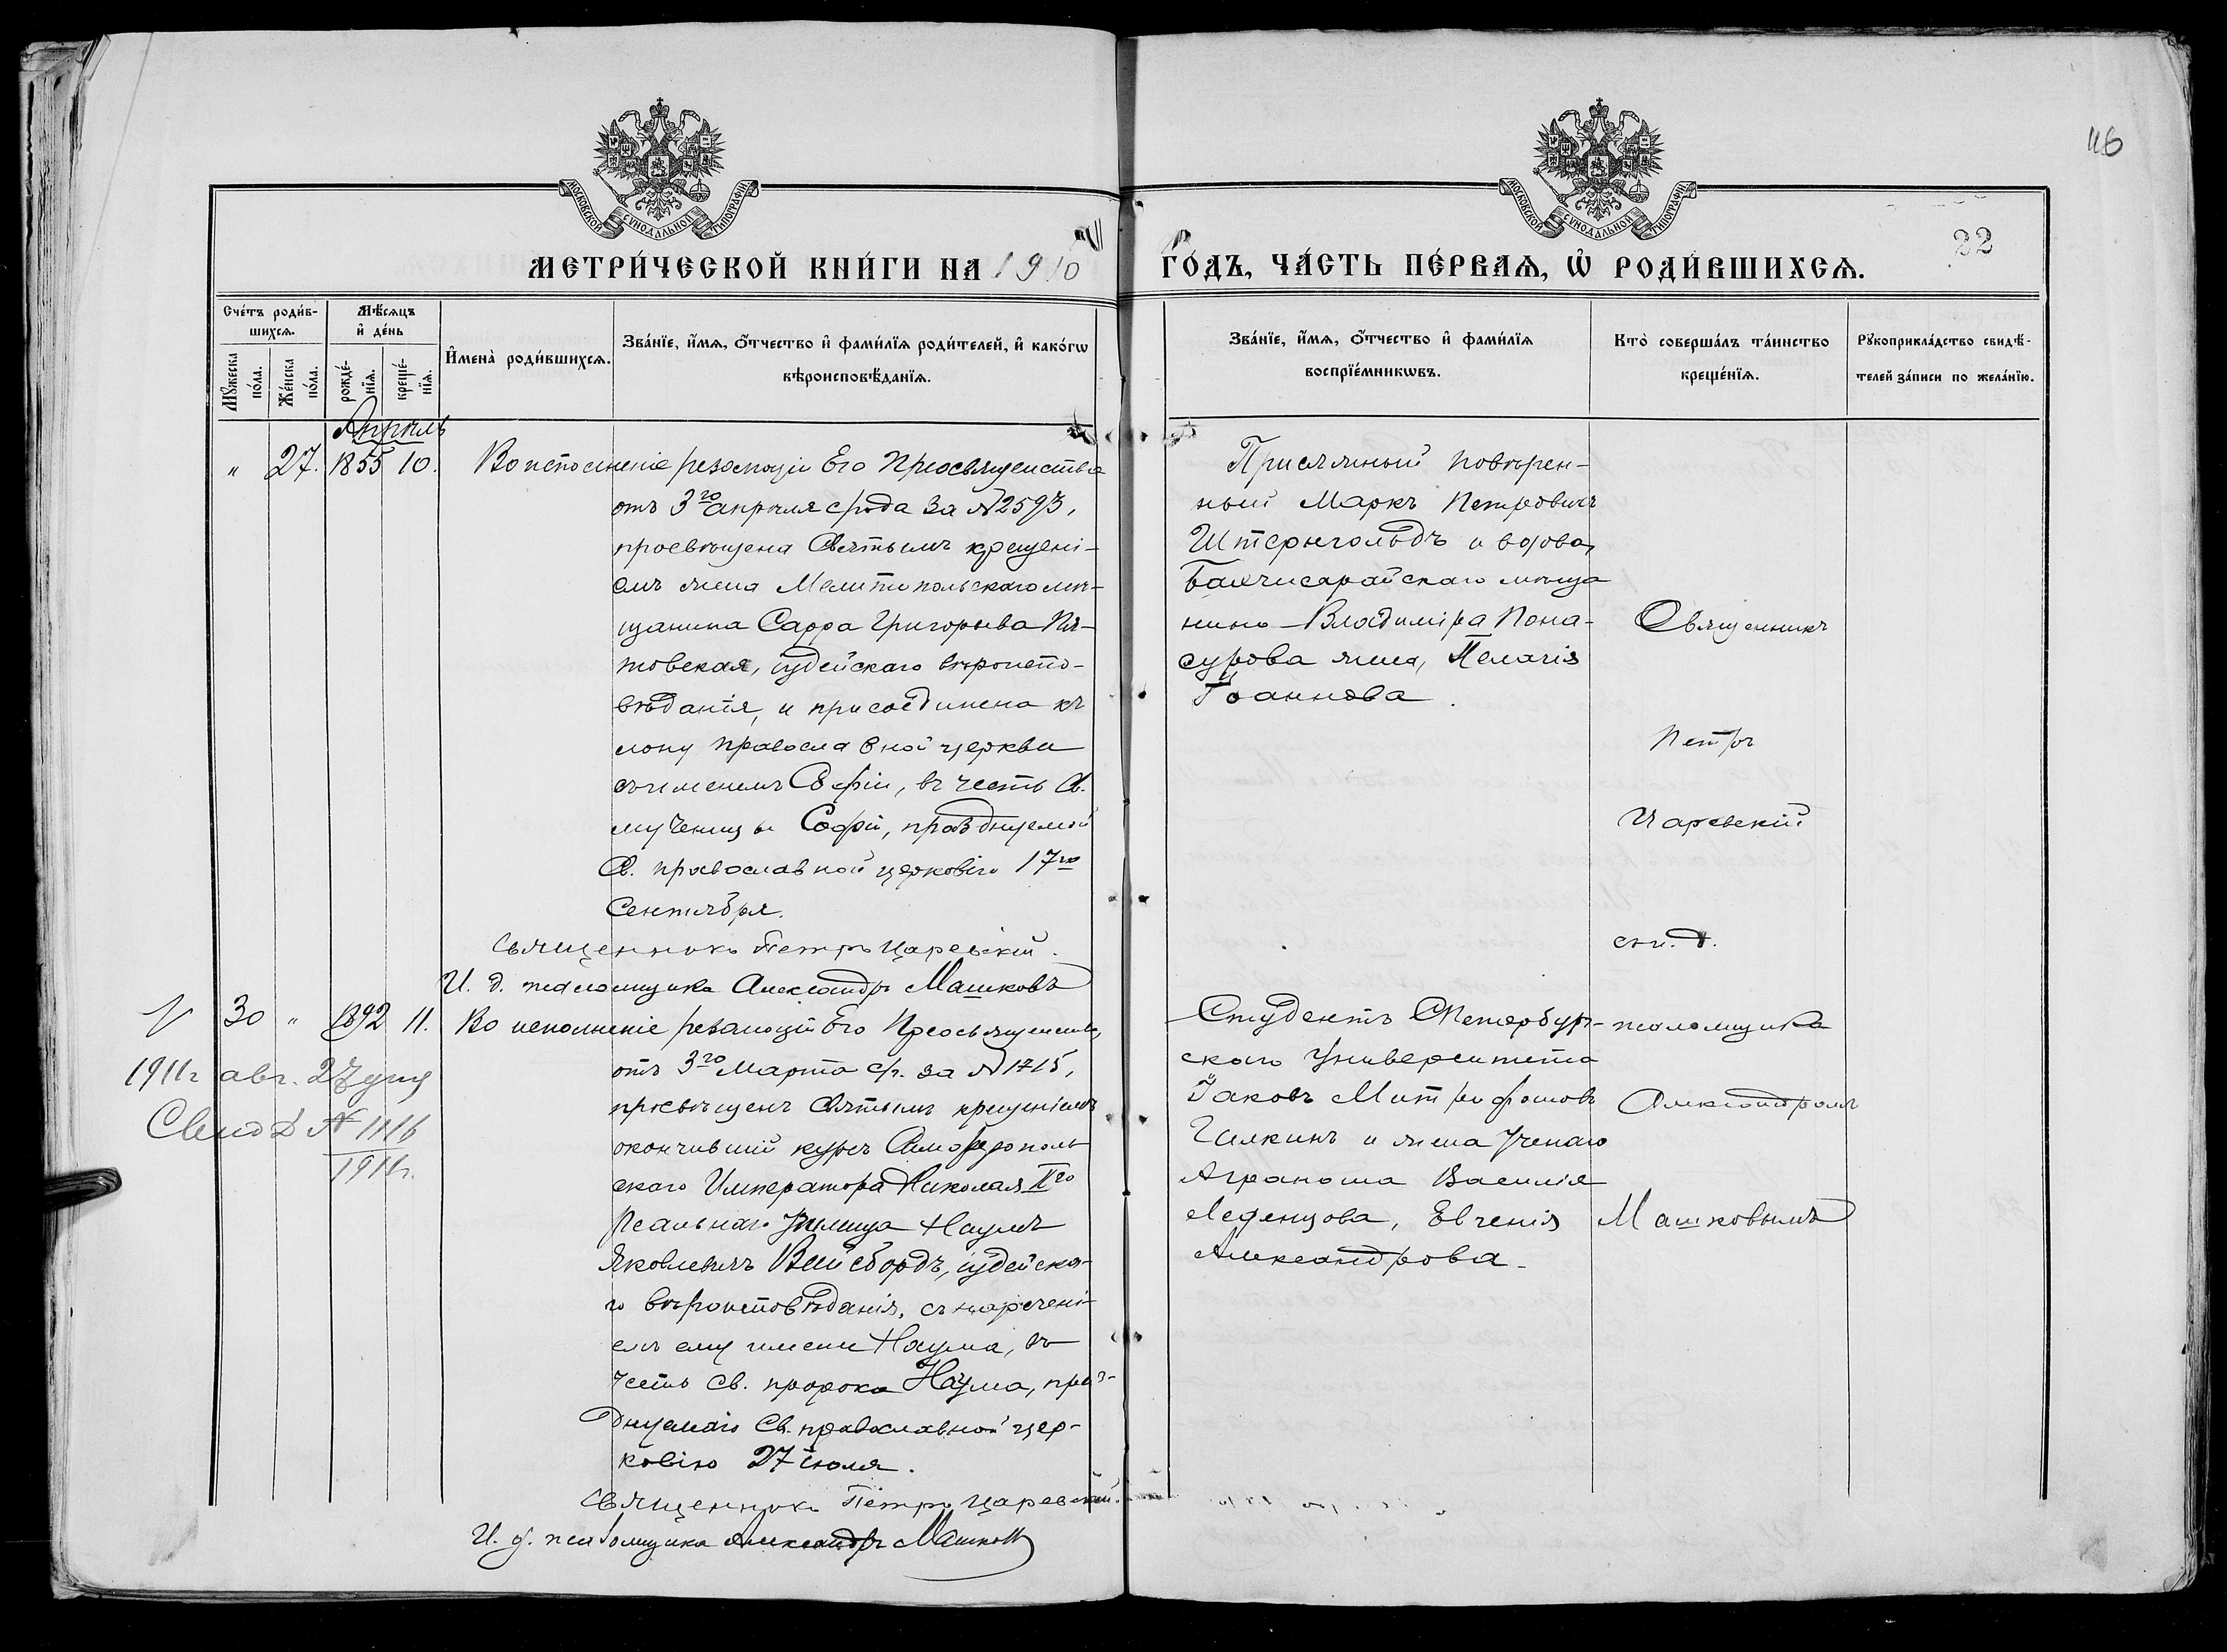 46
МОСКОВСКОЙ СѴНОДАЛЬНОЙ ТИПОГРАФІИ
МОСКОВСКОЙ СѴНОДАЛЬНОЙ ТИПОГРАФІИ
22
МЕТРИ́ЧЕСКОЙ КНИ́ГИ НА 1910
ГО́ДЪ, ЧА́СТЬ ПЕ́РВАѦ, Ѡ҆ РОДИ́ВШИХСѦ.
Сче́тъ роди́в-
шихсѧ.
Мꙋ́жеска
по́ла.
Же́нска
по́ла.
Мѣ́сѧцъ
и҆ де́нь
рожде́-
нїѧ.
креще́-
нїѧ.
И҆мена̀ роди́вшихсѧ.
Зва́нїе, и҆́мѧ, ѻ҆́тчество и҆ фами́лїѧ роди́телей, и҆ како́гѡ
вѣроисповѣ́данїѧ.
Зва́нїе, и҆́мѧ, ѻ҆́тчество и҆ фами́лїѧ
воспрїе́мникѡвъ.
Кто̀ соверша́лъ та́инство
креще́нїѧ.
Рꙋкоприкла́дство свидѣ́-
телей за́писи по жела́нїю.
Апрѣль
" 27. 1855 10. Во исполненіе резолюціи Его Преосвященства
отъ 3го апрѣля с/года за № 2593,
просвѣщена Святымъ крещені-
емъ жена Мелитопольскаго мѣ-
щанина Сарра Григорьева Пя-
товская, іудейскаго вѣроиспо-
вѣданія, и присоединена къ
лону православной церкви
съ именемъ Софіи, въ честь Св.
мученицы Софіи, празднуемой
Св. православной церковію 17го
Сентября.
Священникъ Петръ Царевскій.
И. д. псаломщика Александръ Машковъ
Присяжный повѣрен-
ный Маркъ Петровичъ
Штернгольдъ и вдова,
Бахчисарайскаго мѣща
нина Владиміра Пона-
сурова жена, Пелагія
Іоаннова.
Священникъ
Петръ
Царевскій
съ и. д.
псаломщика
Александромъ
Машковымъ
V 30 " 1892 11. Во исполненіе резолюціи Его Преосвященства,
отъ 3го Марта с/г. за № 1715,
просвѣщенъ Святымъ крещеніемъ
окончившій курсъ Симферополь
скаго Императора Николая IIго
Реальнаго Училища Наумъ
Яковлевичъ Вейсбордъ, іудейска-
го вѣроисповѣданія, съ нареченi-
емъ ему имени Наума, въ
честь Св. пророка Наума, праз-
днуемаго Св. православной цер-
ковію 27 іюля.
Священникъ Петръ Царевскій.
И. д. псаломщика Александръ Машковъ
1911г авг. 27
Свид № 1116
1911г.
Студентъ СПетербург-
скаго Университета
Іаковъ Митрофановъ
Чилкинъ и жена Ученаго
Агранома Василія
Леденцова, Евгенія
Александрова.